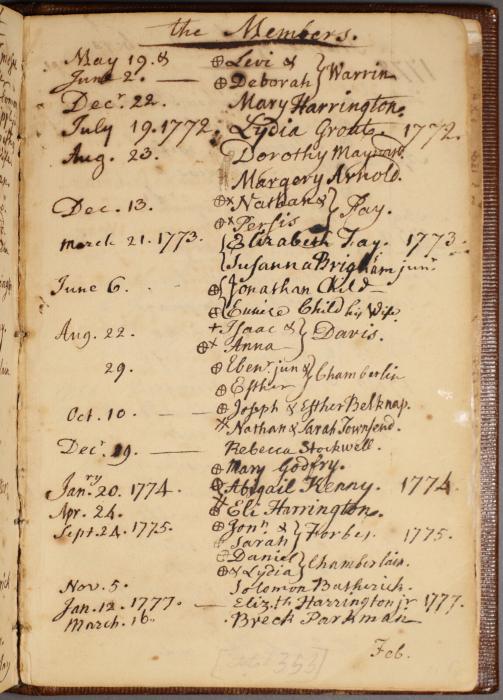 the Members.
May 19. & ⊕ Levi & } Warrin
June 2. — ⊕ Deborah
Decr. 22. Mary Harrington.
July 19. 1772. Lydia Grout. 1772.
Aug. 23. Dorothy Maynard.
Margery Arnold.
Dec. 13. ⊕x Nathan & } Fay.
⊕x Persis
March 21. 1773. Elizabeth Fay. 1773.
Susanna Brigham junr.
June 6. ⊕ Jonathan Child
⊕ Eunice Child his Wife
Aug. 22. + Isaac & } Davis.
⊕x Anna
29. ⊕ Ebenr. jun & } Chamberlin
⊕ Esther
Oct. 10. — ⊕ Joseph & Esther Belknap.
x Nathan & Sarah Townsend.
Decr. 29. — Rebecca Stockwell.
⊕ Mary Godfry.
Janry. 20. 1774. ⊕ Abigail Kenny. 1774
Apr. 24. Eli Harrington.
Sept. 24. 1775. ⊕ Jonn. & } Forbes. 1775.
Sarah
Daniel } Chamberlain.
⊕x & Lydia
Nov. 5. Solomon Batherick.
Jan. 12. 1777. — Elizth. Harrington jr 1777.
March. 16. Breck Parkman
Feb.
353